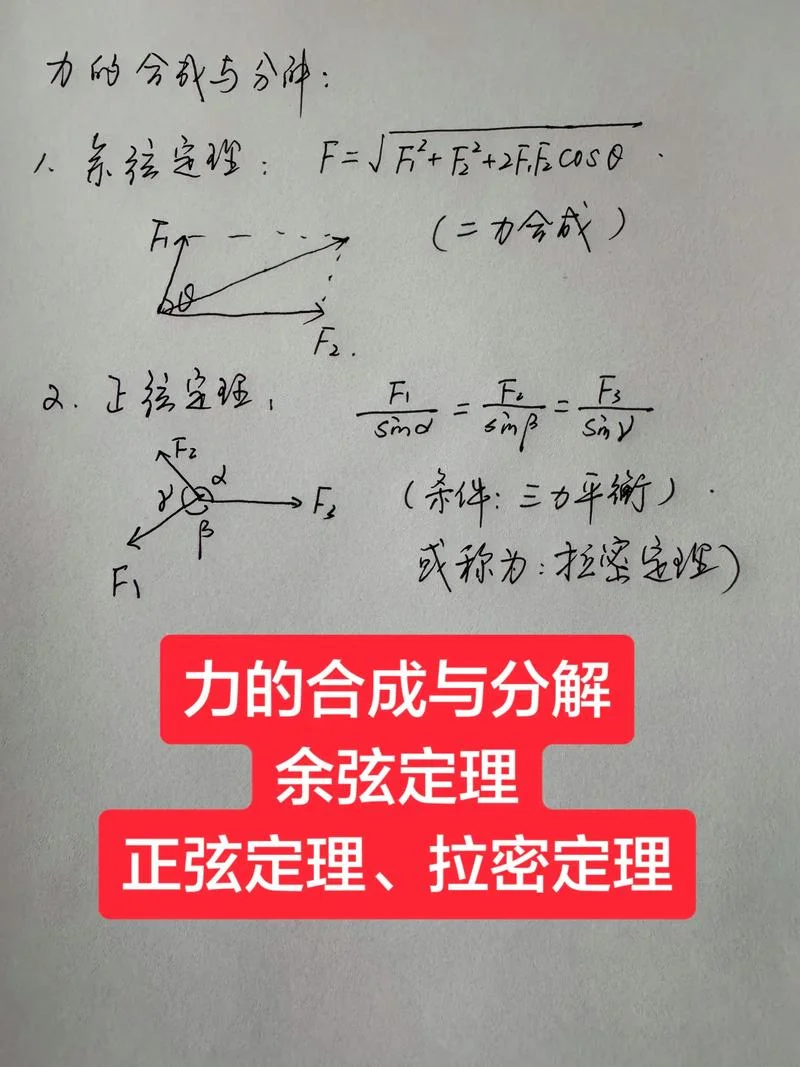 力的合成与分解：
1. 余弦定理： F=√F₁²+F₂²+2F₁F₂cosθ .
（二力合成）
F₁
θ
F₂.
2. 正弦定理， F₁/sinα = F₂/sinβ = F₃/sinγ
F₂
α
γ
F₃
β
F₁
（条件：三力平衡）.
或称为：拉密定理）
力的合成与分解
余弦定理
正弦定理、拉密定理